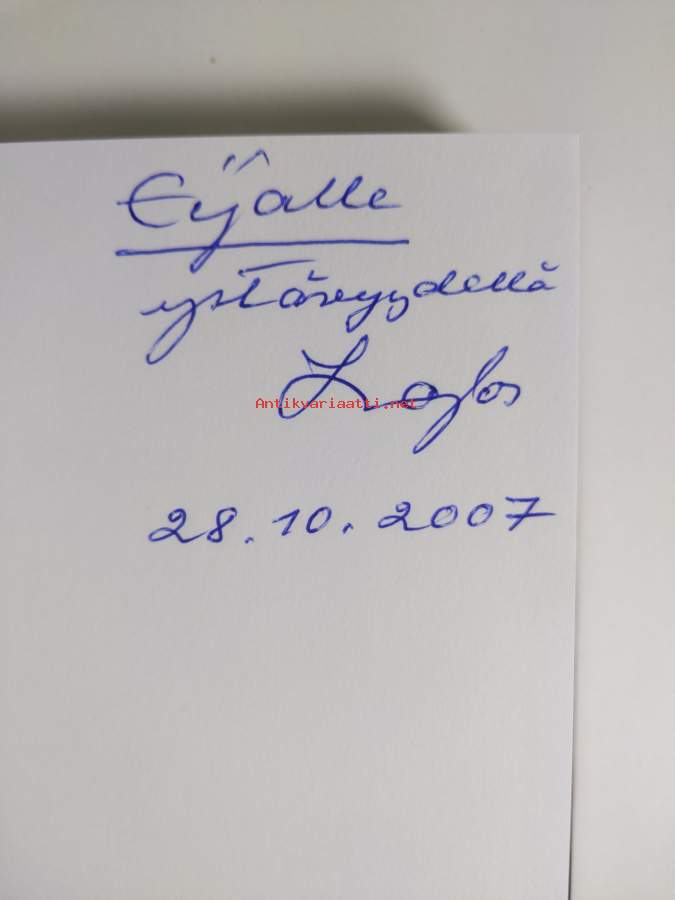 Eijalle
ystävyydellä
Lajos
Antikvariaatti.net
28.10.2007